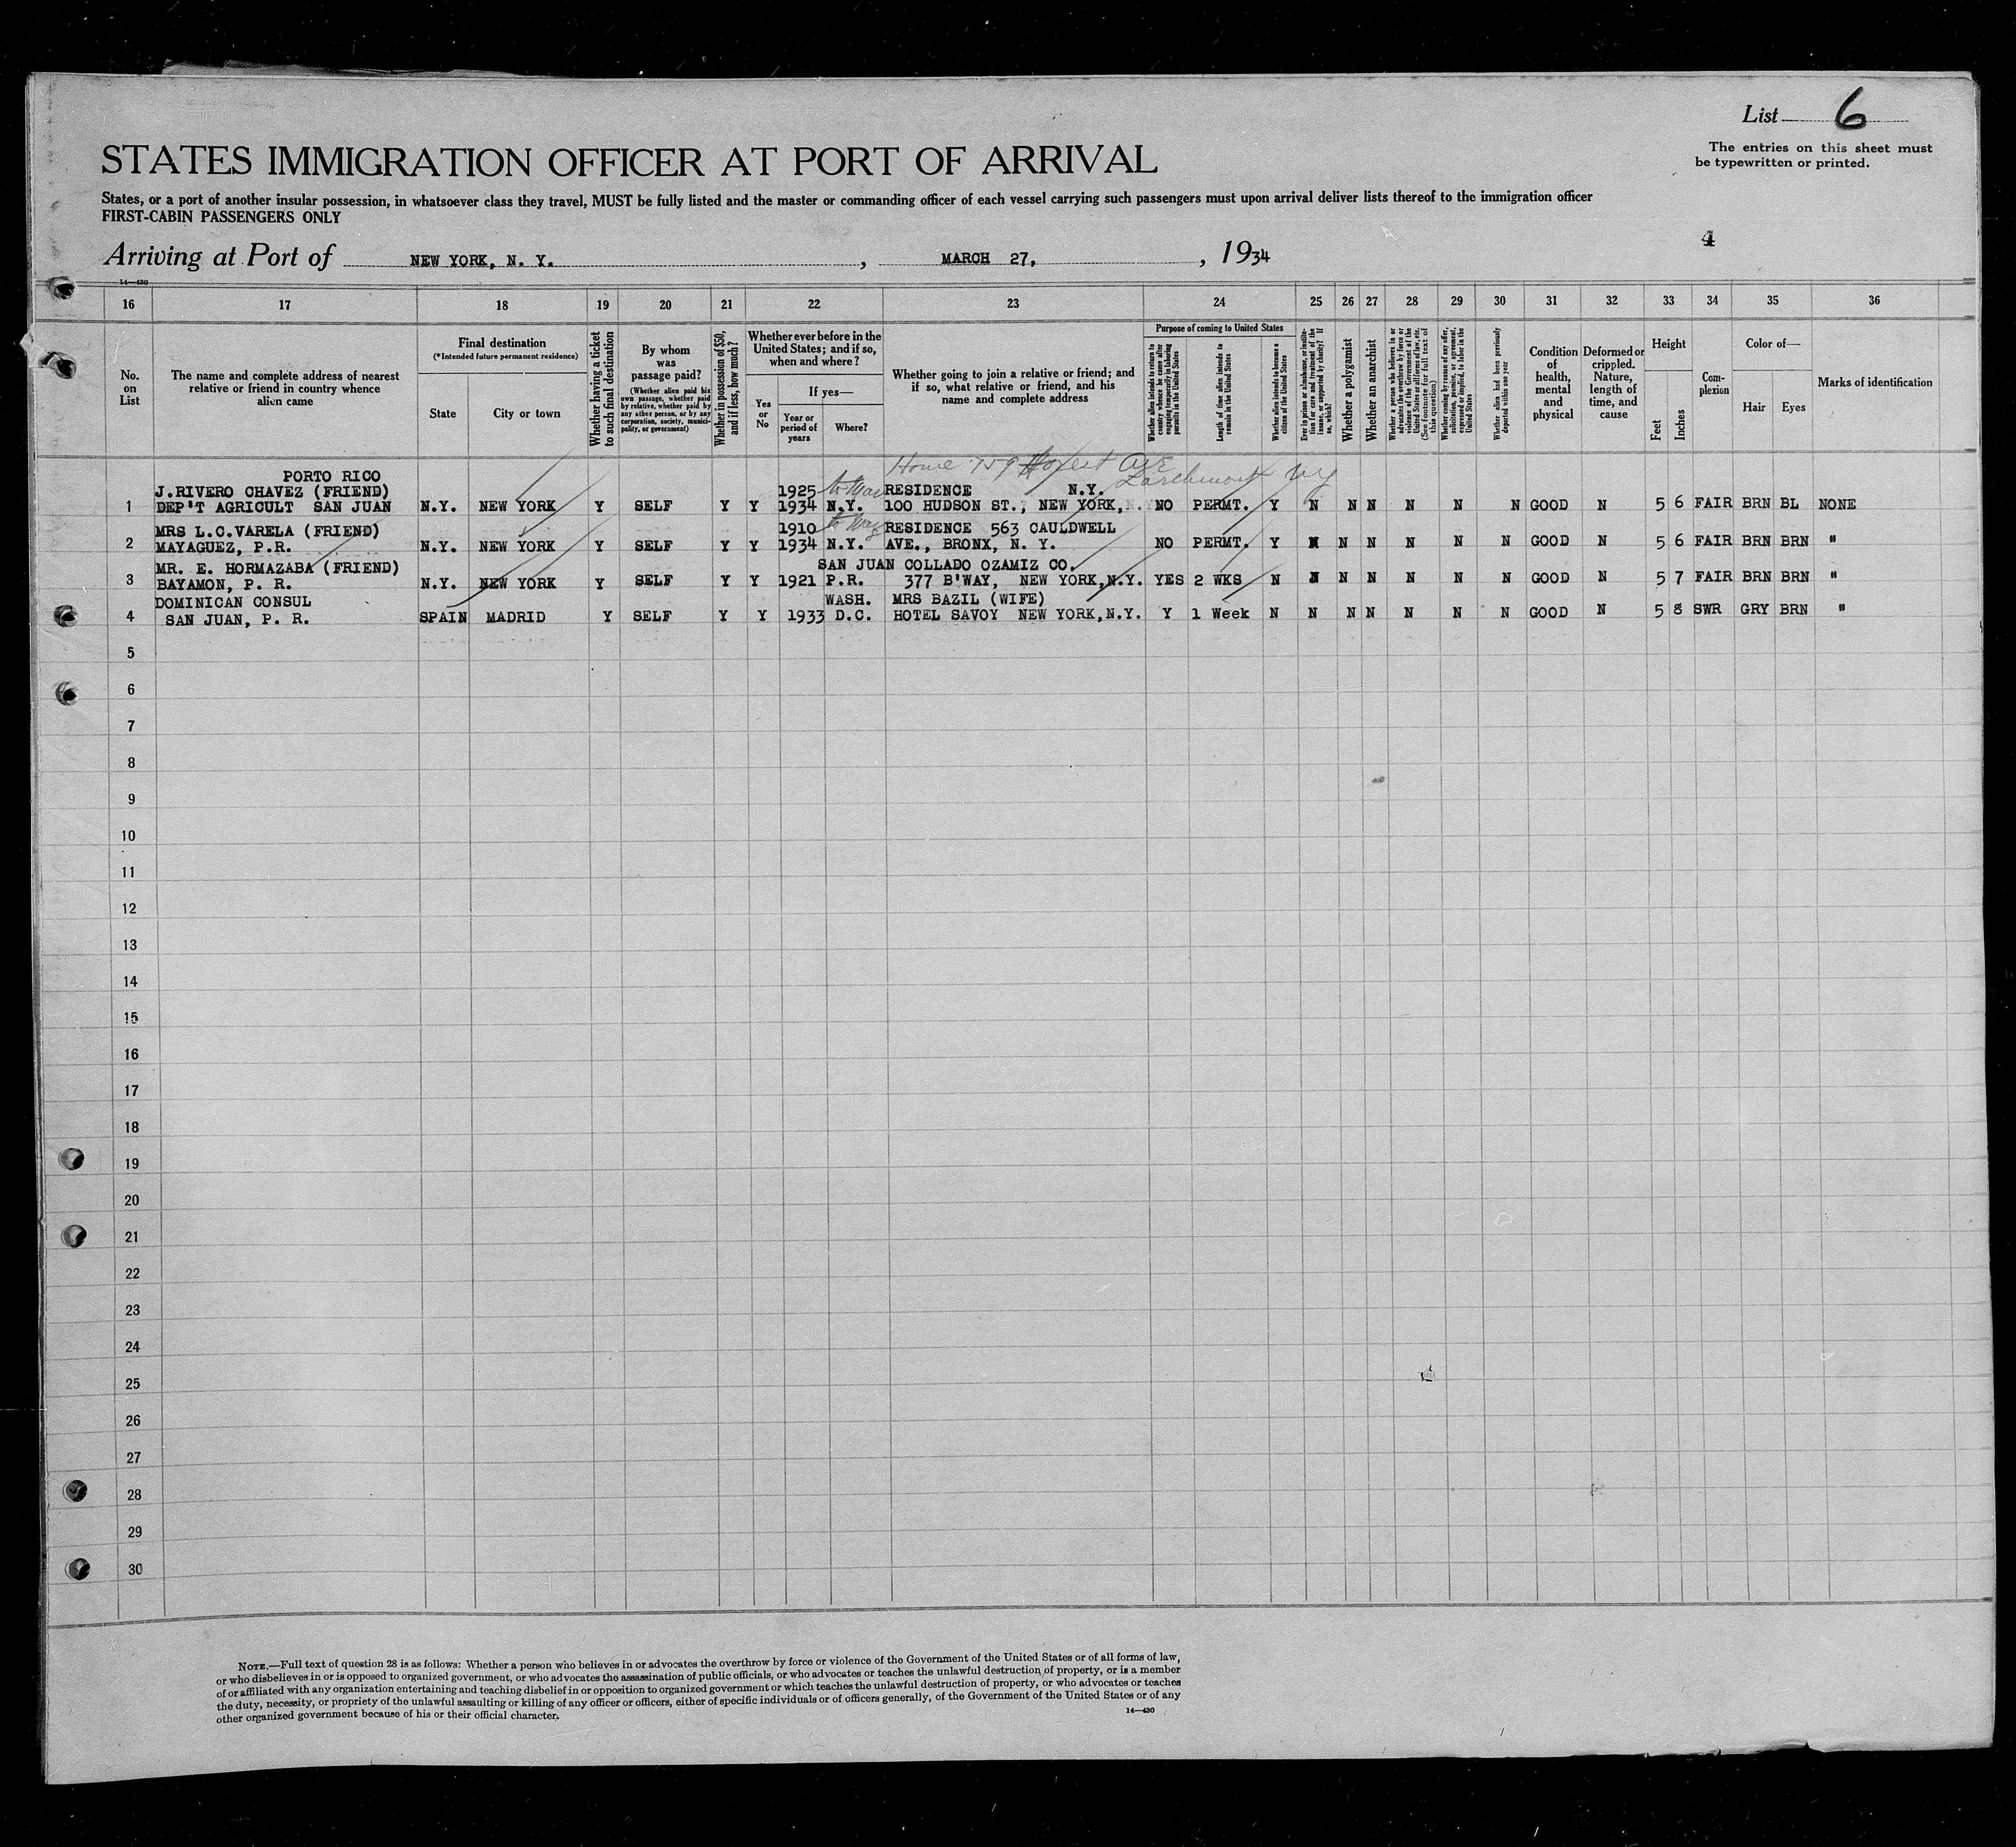 List 6
The entries on this sheet must
be typewritten or printed.
STATES IMMIGRATION OFFICER AT PORT OF ARRIVAL
States, or a port of another insular possession, in whatsoever class they travel, MUST be fully listed and the master or commanding officer of each vessel carrying such passengers must upon arrival deliver lists thereof to the immigration officer
FIRST-CABIN PASSENGERS ONLY
4
Arriving at Port of NEW YORK, N. Y. , MARCH 27, , 1934
14—430
16 17 18 19 20 21 22 23 24 25 26 27 28 29 30 31 32 33 34 35 36
No.
on
List
The name and complete address of nearest
relative or friend in country whence
alien came
Final destination
(*Intended future permanent residence)
State
City or town
Whether having a ticket
to such final destination
By whom
was
passage paid?
(Whether alien paid his
own passage, whether paid
by relative, whether paid by
any other person, or by any
corporation, society, munici-
pality, or government)
Whether in possession of $50,
and if less, how much?
Whether ever before in the
United States; and if so,
when and where?
If yes—
Yes
or
No
Year or
period of
years
Where?
Whether going to join a relative or friend; and
if so, what relative or friend, and his
name and complete address
Purpose of coming to United States
Whether alien intends to return to
country whence he came after
engaging temporarily in laboring
pursuits in the United States
Length of time alien intends to
remain in the United States
Whether alien intends to become a
citizen of the United States
Ever in prison or almshouse, or institu-
tion for care and treatment of the
insane, or supported by charity? If
so, which?
Whether a polygamist
Whether an anarchist
Whether a person who believes in or
advocates the overthrow by force or
violence of the Government of the
United States or all forms of law, etc.
(See footnote for full text of
this question)
Whether coming by reason of any offer,
solicitation, promise, or agreement,
expressed or implied, to labor in the
United States
Whether alien had been previously
deported within one year
Condition
of
health,
mental
and
physical
Deformed or
crippled.
Nature,
length of
time, and
cause
Height
Feet
Inches
Com-
plexion
Color of—
Hair
Eyes
Marks of identification
Home 759 Forest Ave
Larchmont NY
PORTO RICO
J.RIVERO CHAVEZ (FRIEND) 1925 to RESIDENCE N.Y.
1 DEP'T AGRICULT SAN JUAN N.Y. NEW YORK Y SELF Y Y 1934 N.Y. 100 HUDSON ST., NEW YORK, NO PERMT. Y N N N N N N GOOD N 5 6 FAIR BRN BL NONE
MRS L.C.VARELA (FRIEND) 1910 to RESIDENCE 563 CAULDWELL
2 MAYAGUEZ, P.R. N.Y. NEW YORK Y SELF Y Y 1934 N.Y. AVE., BRONX, N. Y. NO PERMT. Y N N N N N N GOOD N 5 6 FAIR BRN BRN "
MR. E. HORMAZABA (FRIEND) SAN JUAN COLLADO OZAMIZ CO.
3 BAYAMON, P. R. N.Y. NEW YORK Y SELF Y Y 1921 P.R. 377 B'WAY, NEW YORK,N.Y. YES 2 WKS N N N N N N N GOOD N 5 7 FAIR BRN BRN "
DOMINICAN CONSUL WASH. MRS BAZIL (WIFE)
4 SAN JUAN, P. R. SPAIN MADRID Y SELF Y Y 1933 D.C. HOTEL SAVOY NEW YORK,N.Y. Y 1 Week N N N N N N N GOOD N 5 8 SWR GRY BRN "
5
6
7
8
9
10
11
12
13
14
15
16
17
18
19
20
21
22
23
24
25
26
27
28
29
30
NOTE.—Full text of question 28 is as follows: Whether a person who believes in or advocates the overthrow by force or violence of the Government of the United States or of all forms of law,
or who disbelieves in or is opposed to organized government, or who advocates the assassination of public officials, or who advocates or teaches the unlawful destruction of property, or is a member
of or affiliated with any organization entertaining and teaching disbelief in or opposition to organized government or which teaches the unlawful destruction of property, or who advocates or teaches
the duty, necessity, or propriety of the unlawful assaulting or killing of any officer or officers, either of specific individuals or of officers generally, of the Government of the United States or of any
other organized government because of his or their official character.
14—430